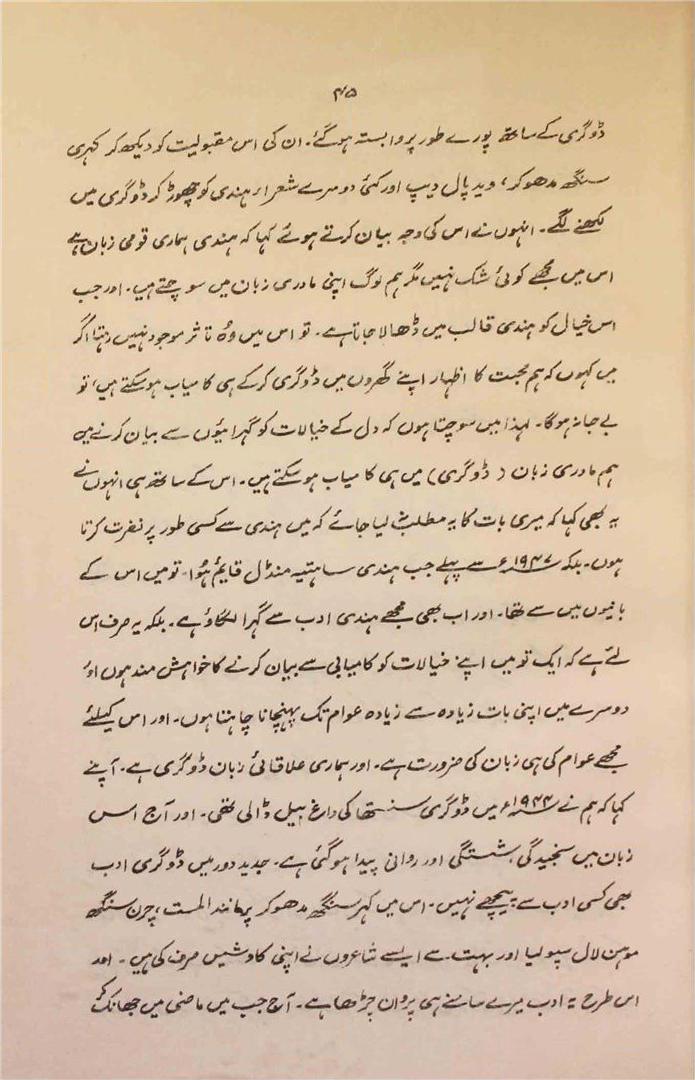 ۴۵
ڈوگری کے ساتھ پورے طور پر وابستہ ہوگئے۔ ان کی اس مقبولیت کو دیکھ کر کہری
سنگھ مدھوکر، وید پال دیپ اور کئی دوسرے شعراء ہندی کو چھوڑ کر ڈوگری میں
لکھنے لگے۔ انہوں نے اس کی وجہ بیان کرتے ہوئے کہا کہ ہندی ہماری قومی زبان ہے
اس میں مجھے کوئی شک نہیں مگر ہم لوگ اپنی مادری زبان میں سوچتے ہیں۔ اور جب
اس خیال کو ہندی قالب میں ڈھالا جاتا ہے۔ تو اس میں وُہ تاثر موجود نہیں رہتا اگر
میں کہوں کہ ہم محبت کا اظہار اپنے گھروں میں ڈوگری کرکے ہی کامیاب ہوسکتے ہیں، تو
بے جا نہ ہوگا۔ لہذا میں سوچتا ہوں کہ دل کے خیالات کو گہرائیوں سے بیان کرنے میں
ہم مادری زبان (ڈوگری) میں ہی کامیاب ہوسکتے ہیں۔ اس کے ساتھ ہی انہوں نے
یہ بھی کہا کہ میری بات کا یہ مطلب نہ لیا جائے کہ میں ہندی سے کسی طور پر نفرت کرتا
ہوں۔ بلکہ ۱۹۴۷ء سے پہلے جب ہندی ساہتیہ منڈل قایم ہُوا۔ تو میں اس کے
بانیوں میں سے تھا۔ اور اب بھی مجھے ہندی ادب سے گہرا لگاؤ ہے۔ بلکہ یہ صرف اس
لئے ہے کہ ایک تو میں اپنے خیالات کو کامیابی سے بیان کرنے کا خواہش مند ہوں اور
دوسرے میں اپنی بات زیادہ سے زیادہ عوام تک پہنچانا چاہتا ہوں۔ اور اس کیلئے
مجھے عوام کی ہی زبان کی ضرورت ہے۔ اور ہماری علاقائی زبان ڈوگری ہے۔ آپنے
کہا کہ ہم نے ۱۹۴۴ء میں ڈوگری سنستھا کی داغ بیل ڈالی تھی۔ اور آج اس
زبان میں سنجیدگی شستگی اور روانی پیدا ہوگئی ہے۔ جدید دور میں ڈوگری ادب
بھی کسی ادب سے پیچھے نہیں۔ اس میں کہر سنگھ مدھوکر پرمانند المست، چرن سنگھ
موہن لال سپولیا اور بہت سے ایسے شاعروں نے اپنی کاوشیں صرف کی ہیں۔ اور
اس طرح یہ ادب میرے سامنے ہی پروان چڑھا ہے۔ آج جب میں ماضی میں جھانک کر